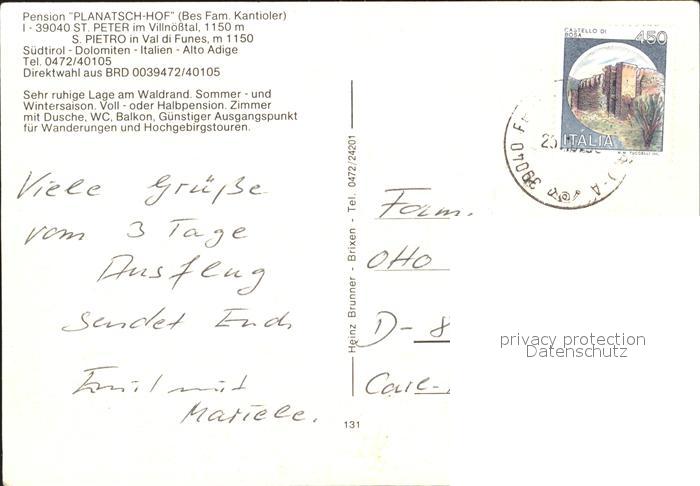 Pension "PLANATSCH-HOF" (Bes Fam. Kantioler)
I - 39040 ST. PETER im Villnößtal, 1150 m
S. PIETRO in Val di Funes, m 1150
Südtirol - Dolomiten - Italien - Alto Adige
Tel. 0472/40105
Direktwahl aus BRD 0039472/40105
Sehr ruhige Lage am Waldrand. Sommer - und
Wintersaison. Voll - oder Halbpension. Zimmer
mit Dusche, WC, Balkon, Günstiger Ausgangspunkt
für Wanderungen und Hochgebirgstouren.
Viele Grüße
vom 3 Tage
Ausflug
sendet Euch
Emil mit
Mariele.
Heinz Brunner - Brixen - Tel. 0472/24201
131
CASTELLO DI
ROSA
450
ITALIA
39040
Fam.
Otto
D-8
Carl-
privacy protection
Datenschutz